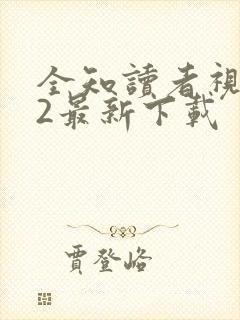 全知讀者視
2最新下載
賈登峪